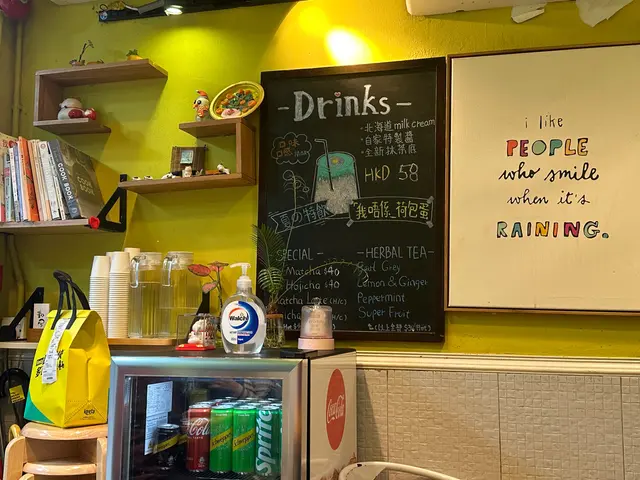 - Drinks -
·北海道milk cream
·自家特製醬
·全新抹茶底
HKD 58
夏の特飲
我唔係 荷包蛋
SPECIAL -
Matcha $40
Hojicha $40
- HERBAL TEA -
Earl Grey
Lemon & Ginger
Peppermint
Super Fruit
i like
PEOPLE
who smile
when it's
RAINING.
COOK
BOOK
Walch
Coca-Cola
Coca-Cola
Schweppes
Schweppes
Sprite